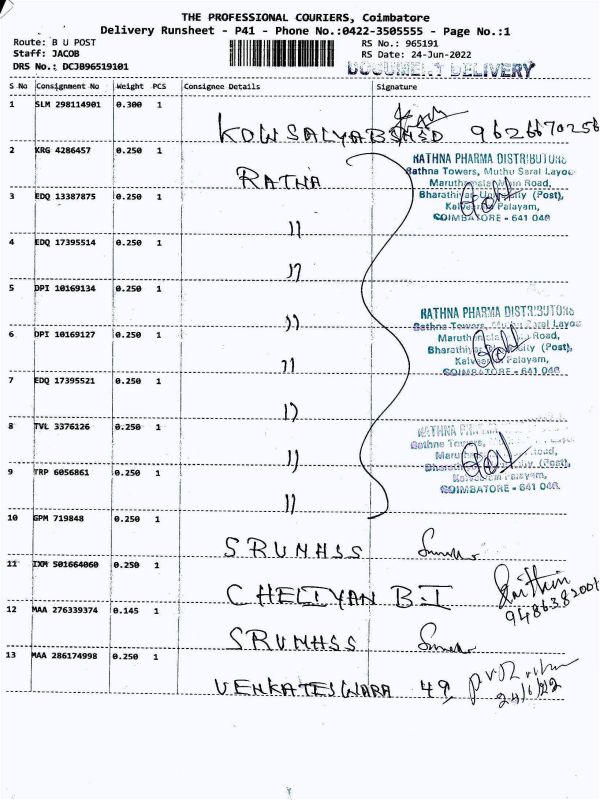 THE PROFESSIONAL COURIERS, Coimbatore
Delivery Runsheet - P41 - Phone No.:0422-3505555 - Page No.:1
Route: B U POST RS No.: 965191
Staff: JACOB RS Date: 24-Jun-2022
DRS No.: DCJB96519101 DOCUMENT DELIVERY
S No Consignment No Weight PCS Consignee Details Signature
1 SLM 298114901 0.300 1
9626670256
2 KRG 4286457 0.250 1 RATNA
RATHNA PHARMA DISTRIBUTORS
Rathna Towers, Muthu Saral Layou
Road,
3 EDQ 13387875 0.250 1 "
Bharathiyar University (Post),
Palayam,
COIMBATORE - 641 046
4 EDQ 17395514 0.250 1 "
5 DPI 10169134 0.250 1 "
RATHNA PHARMA DISTRIBUTORS
Rathna Towers, Muthu Saral Layou
6 DPI 10169127 0.250 1 "
Road,
(Post),
Palayam,
COIMBATORE - 641 046
7 EDQ 17395521 0.250 1 "
8 TVL 3376126 0.250 1 "
RATHNA
Rathna Towers,
9 TRP 6056861 0.250 1 "
(Post),
COIMBATORE - 641 046
10 GPM 719848 0.250 1 SRUMHSS
11 IXM 501664060 0.250 1 CHELIYAN B.I
12 MAA 276339374 0.145 1 SRUMHSS
13 MAA 286174998 0.250 1 VENKATESWARA 49
24/6/22